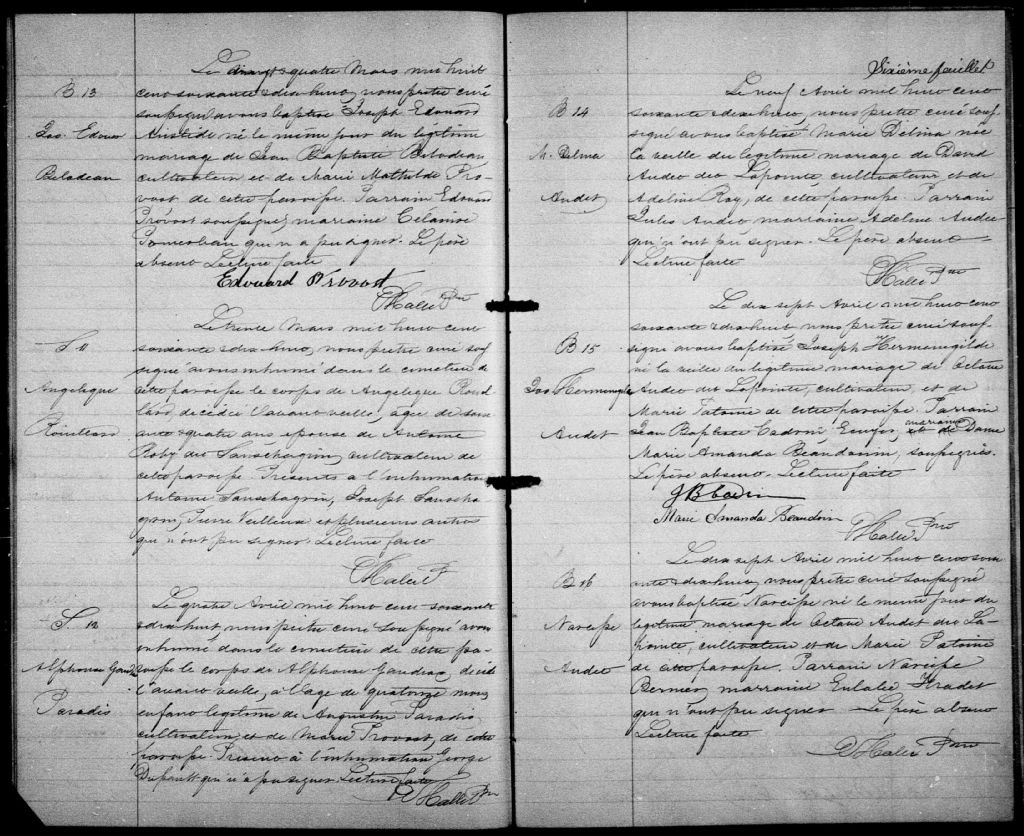 B 13
Jos. Edouard
Bilodeau
Le vingt quatre Mars mil huit
cent soixante & dix huit, nous prêtre curé
soussigné avons baptisé Joseph Edouard
Aristide né le même jour du légitime
mariage de Jean Baptiste Bilodeau
cultivateur et de Marie Mathilde Pro-
vost de cette paroisse. Parrain Edouard
Provost soussigné, marraine Célanire
Pomerleau qui n'a pu signer. Le père
absent Lecture faite
Edouard Provost
Hallé Ptre
S 11
Angelique
Rouillard
Le trente Mars mil huit cent
soixante & dix huit, nous prêtre curé sous-
signé avons inhumé dans le cimetière de
cette paroisse le corps de Angelique Rouil-
lard décédée l'avant veille, âgée de soix-
ante & quatre ans épouse de Antoine
Roby dit Sanschagrin, cultivateur de
cette paroisse. Présents à l'inhumation
Antoine Sanschagrin, Joseph Sanscha-
grin, Pierre Veilleux et plusieurs autres
qui n'ont pu signer. Lecture faite
Hallé Ptr
S. 12
Alphonse
Paradis
Le quatre Avril mil huit cent soixante
& dix huit, nous prêtre curé soussigné avons
inhumé dans le cimetière de cette pa-
roisse le corps de Alphonse décédé
l'avant veille, à l'âge de quatorze mois,
enfant légitime de Augustin Paradis
cultivateur, et de Marie Provost, de cette
paroisse. Présent à l'inhumation George
Dupault qui n'a pu signer Lecture faite
Hallé Ptr
Sixième feuillet
B 14
M. Delina
Audet
Le neuf Avril mil huit cent
soixante & dix huit, nous prêtre curé sous-
signé avons baptisé Marie Delina née
la veille du légitime mariage de David
Audet dit Lapointe cultivateur et de
Adeline Roy, de cette paroisse. Parrain
Jules Audet marraine Adeline Audet
qui n'ont pu signer. Le père absent
Lecture faite
Hallé Ptre
B 15
Jos. Hermenegilde
Audet
Le dix sept Avril mil huit cent
soixante & dix huit nous prêtre curé sous-
signé avons baptisé Joseph Hermenegilde
né la veille du légitime mariage de Octave
Audet dit Lapointe, cultivateur, et de
Marie Patoine de cette paroisse. Parrain
Jean Baptiste Cadrin, Ecuyer, marraine Dame
Marie Amanda Beaudoin, soussignés.
Le père absent. Lecture faite
J B Cadrin
Marie Amanda Beaudoin
Hallé Ptre
B 16
Narcisse
Audet
Le dix sept Avril mil huit cent soix-
ante & dix huit, nous prêtre curé soussigné
avons baptisé Narcisse né le même jour du
légitime mariage de Octave Audet dit La-
pointe, cultivateur et de Marie Patoine
de cette paroisse. Parrain Narcisse
Bernier, marraine Eulalie Fradet
qui n'ont pu signer Le père absent
Lecture faite
Hallé Ptre